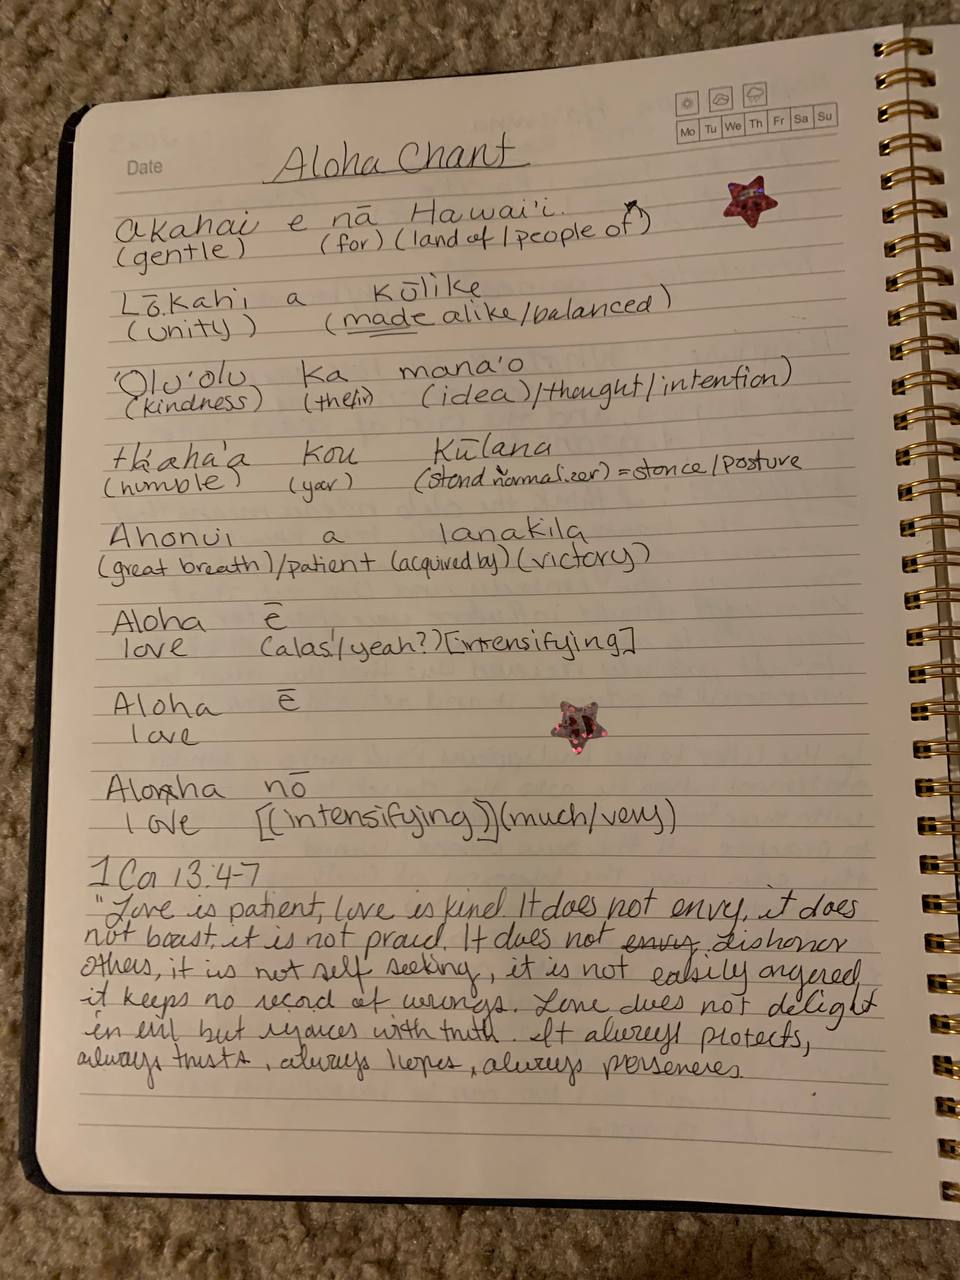 Mo Tu We Th Fr Sa Su
Date
Aloha Chant
Akahai e nā Hawai'i.
(gentle) (for) (land of/people of)
Lōkahi a Kūlike
(unity) (made alike/balanced)
'Olu'olu ka mana'o
(kindness) (the) (idea)/thought/intention)
Ha'aha'a kou Kūlana
(humble) (your) (stand normalizer) = stance/posture
Ahonui a lanakila
(great breath)/patient (acquired by) (victory)
Aloha ē
love (alas!/yeah?) [intensifying]
Aloha ē
love
Aloha nō
love [(intensifying)] (much/very)
1 Cor 13:4-7
"Love is patient, love is kind. It does not envy, it does
not boast, it is not proud. It does not envy dishonor
others, it is not self seeking, it is not easily angered,
it keeps no record of wrongs. Love does not delight
in evil but rejoices with truth. It always protects,
always trusts, always hopes, always perseveres.